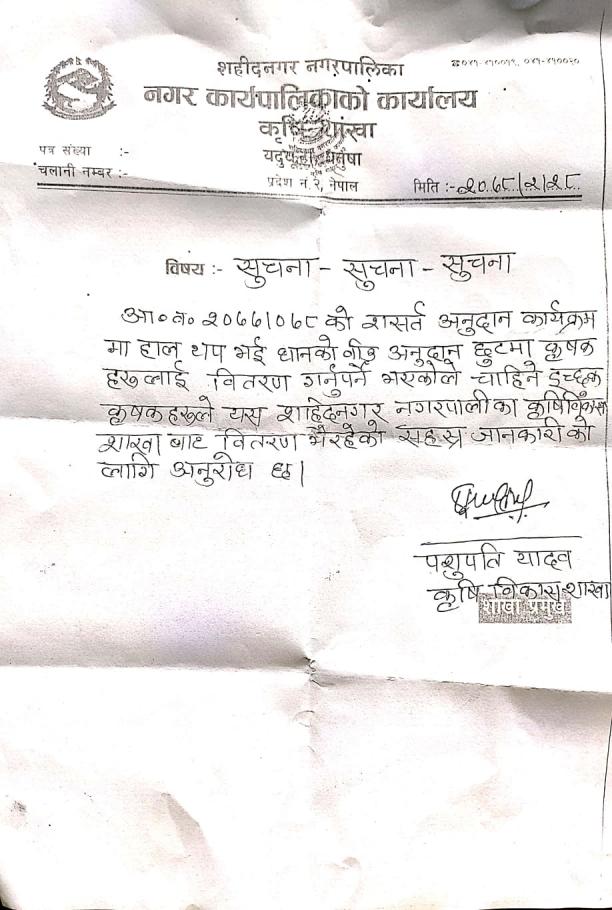 शहीदनगर नगरपालिका
☎०४१-४१००१९, ०४१-४१००२०
नगर कार्यपालिकाको कार्यालय
कृषि शाखा
यदुकुहा, धनुषा
प्रदेश नं. २, नेपाल
पत्र संख्या :-
चलानी नम्बर :-
मिति :- २०७८/२/२८
विषय :- सुचना - सुचना - सुचना
आ०व० २०७७/०७८ को शसर्त अनुदान कार्यक्रम
मा हाल थप भई धानको बीउ अनुदान छुटमा कृषक
हरुलाई वितरण गर्नुपर्ने भएकोले चाहिने इच्छुक
कृषकहरुले यस शाहिदनगर नगरपालीका कृषि विकास
शाखा बाट वितरण भैरहेको सहस्र जानकारीको
लागि अनुरोध छ।
पशुपति यादव
कृषि विकास शाखा
शाखा प्रमुख